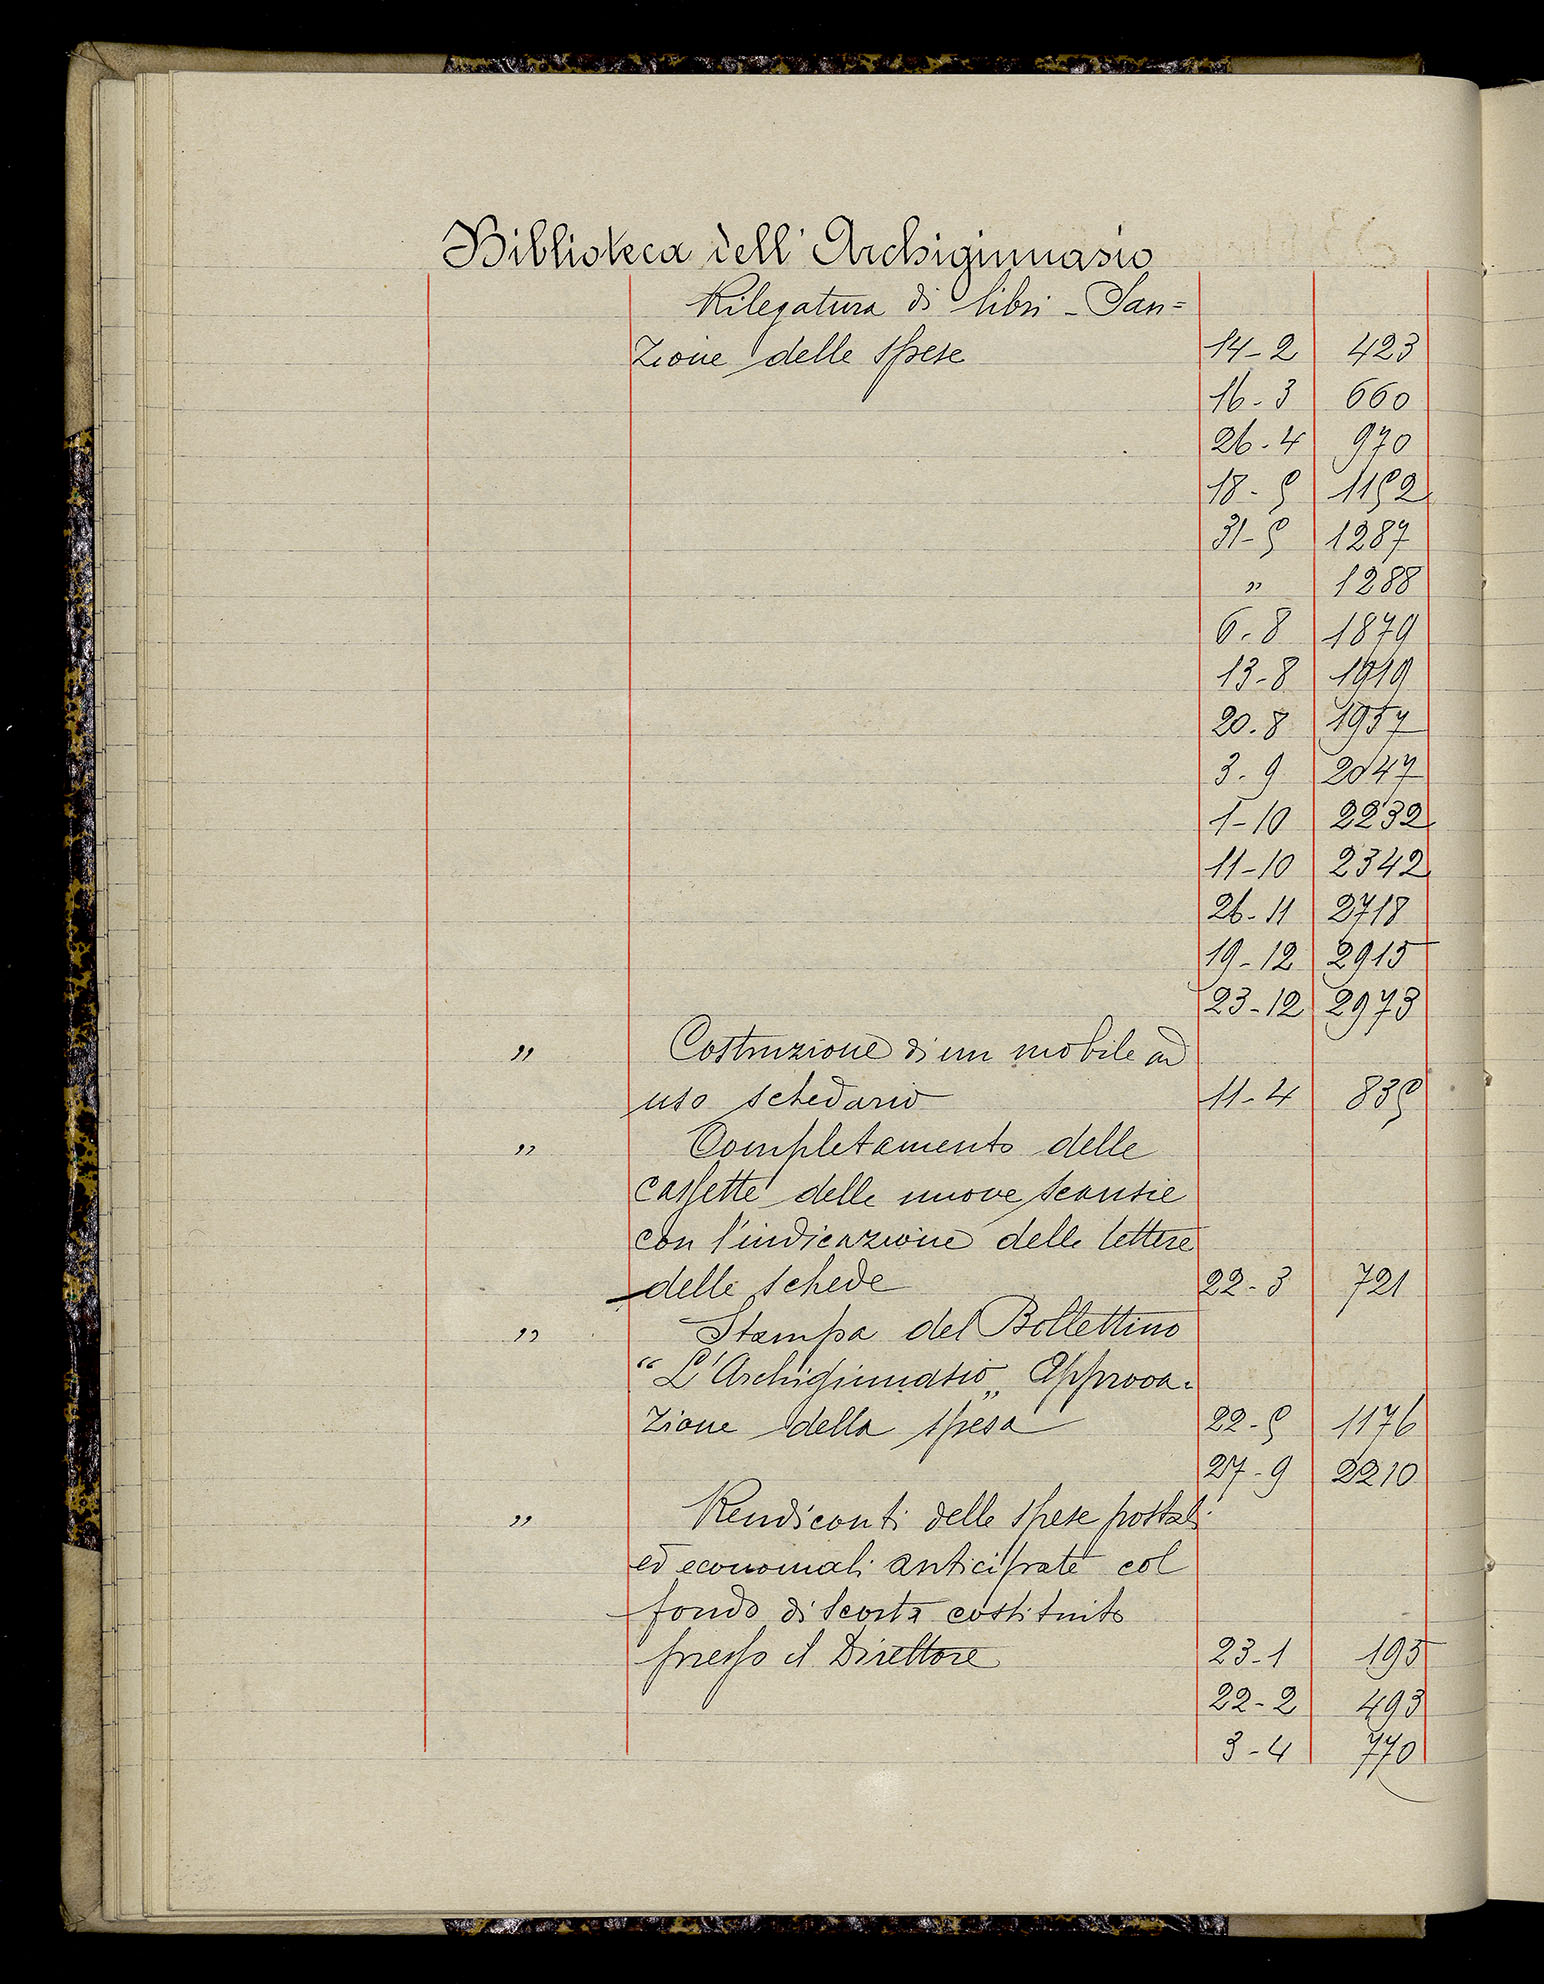 Biblioteca dell'Archiginnasio
Rilegatura di libri - San=
zione delle spese 14-2 423
16-3 660
26-4 970
18-5 1152
31-5 1287
" 1288
6-8 1879
13-8 1919
20-8 1957
3-9 2047
1-10 2232
11-10 2342
26-11 2718
19-12 2915
23-12 2973
" Costruzione di un mobile ad
uso schedario 11-4 835
" Completamento delle
cassette delle nuove scansie
con l'indicazione delle lettere
delle schede 22-3 721
" Stampa del Bollettino
"L'Archiginnasio" Approva-
zione della spesa 22-5 1176
27-9 2210
" Rendiconti delle spese postali
ed economali anticipate col
fondo di scorta costituito
presso il Direttore 23-1 195
22-2 493
3-4 770